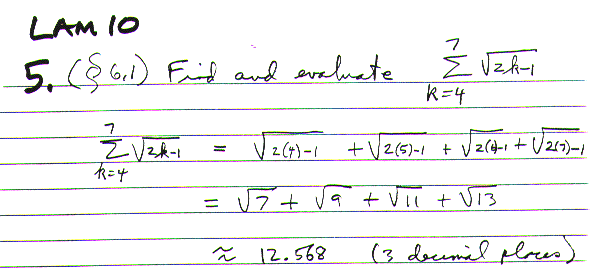 LAM 10
5. (§ 6.1) Find and evaluate \sum_{k=4}^{7} \sqrt{2k-1}
\sum_{k=4}^{7} \sqrt{2k-1} = \sqrt{2(4)-1} + \sqrt{2(5)-1} + \sqrt{2(6)-1} + \sqrt{2(7)-1}
= \sqrt{7} + \sqrt{9} + \sqrt{11} + \sqrt{13}
≈ 12.568 (3 decimal places)